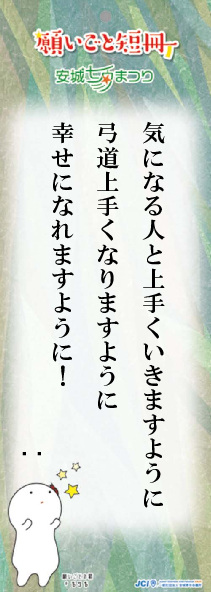 願いごと短冊
安城七夕まつり
気になる人と上手くいきますように
弓道上手くなりますように
幸せになれますように!
..
願いごと短冊
JCI